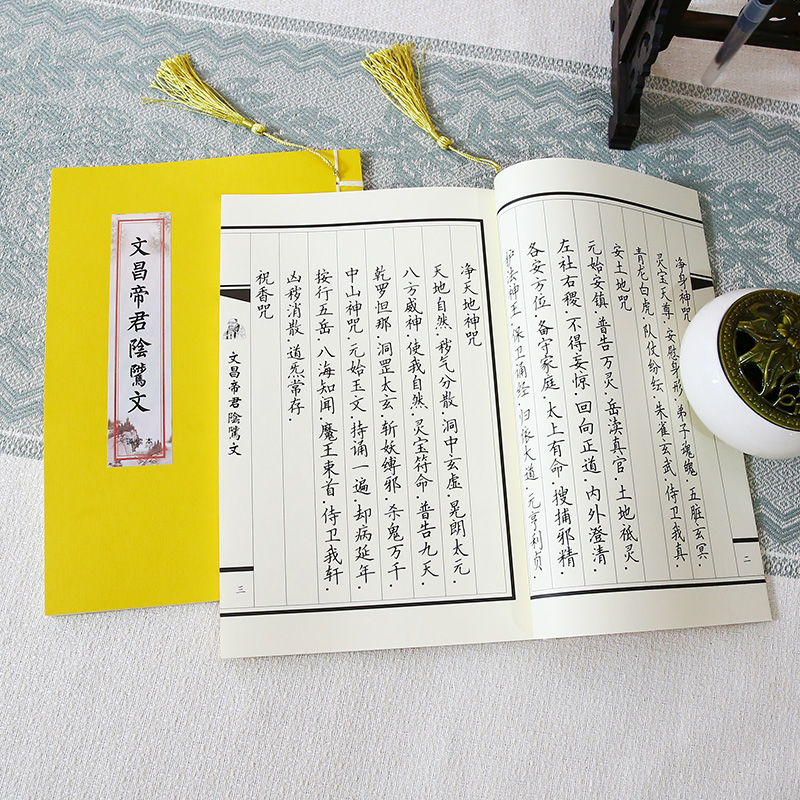 文昌帝君陰騭文
净身神咒
灵宝天尊.安慰身形.弟子魂魄.五脏玄冥.
青龙白虎.队仗纷纭.朱雀玄武.侍卫我真
安土地咒
元始安镇.普告万灵.岳渎真官.土地祗灵
左社右稷.不得妄惊.回向正道.内外澄清.
各安方位.备守家庭.太上有命.搜捕邪精.
护法神王.保卫诵经.归依大道.元亨利贞.
二
净天地神咒
天地自然.秽气分散.洞中玄虚.晃朗太元.
八方威神.使我自然.灵宝符命.普告九天
乾罗怛那.洞罡太玄.斩妖缚邪.杀鬼万千.
中山神咒.元始玉文.持诵一遍.却病延年.
按行五岳.八海知闻.魔王束首.侍卫我轩.
凶秽消散.道炁常存.
祝香咒
文昌帝君陰騭文
三